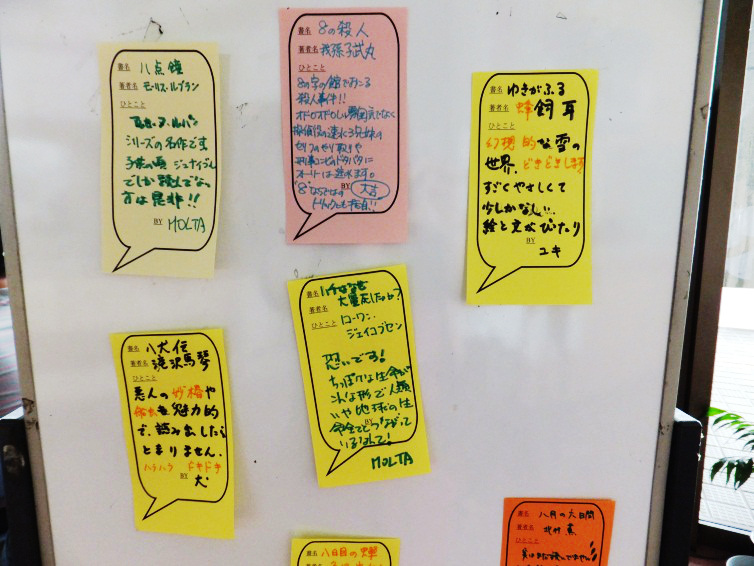 書名 八点鐘
著者名 モーリス・ルブラン
ひとこと
シリーズの名作です
子供の頃 ジュナイブル
でしか読んでない
方は是非!!
BY MOLTA
書名 8の殺人
著者名 我孫子武丸
ひとこと
8の字の館でおこる
殺人事件!!
探偵役の速水3兄妹の
BY
書名 ゆきがふる
著者名 蜂飼耳
ひとこと
幻想的な雪の
世界。どきどきします
すごくやさしくて
少しかなしい…
絵と文がぴったり
BY
ユキ
書名 八犬伝
著者名 滝沢馬琴
ひとこと
悪人の
も魅力的
で、読み出したら
とまりません。
ハラハラ ドキドキ
BY
犬
書名 ハチはなぜ
大量死したのか?
著者名
ひとこと ローワン・
ジェイコブセン
恐いです!
ちっぽけな生命が
こんな形で人類
いや地球の生
命全てとつながって
いるなんて!
BY
MOLTA
書名 八日目の蝉
書名 八月の六日間
著者名 北村薫
ひとこと